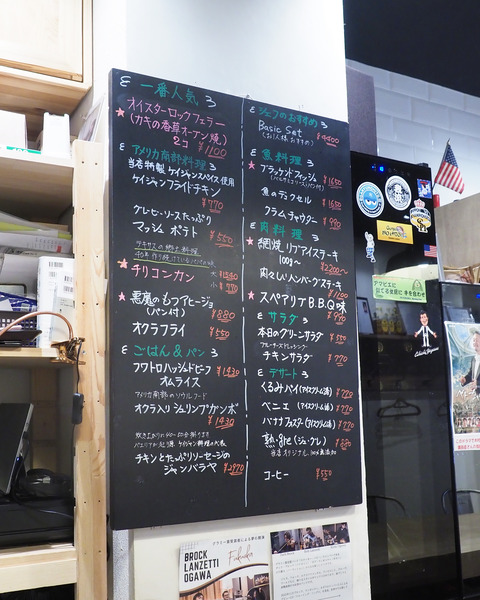 一番人気
オイスターロックフェラー
(カキの香草オーブン焼)
2コ ¥1100
アメリカ南部料理
当店特製ケイジャンスパイス使用
ケイジャンフライドチキン
¥770
グレービーソースたっぷり
マッシュポテト ¥550
テキサスの郷土料理
チリコンカン 大
小
悪魔のもつアヒージョ
(パン付) ¥880
オクラフライ ¥550
ごはん & パン
フワトロハッシュドビーフ ¥1430
オムライス
アメリカ南部のソウルフード
オクラ入りシュリンプガンボ
¥1430
ケイジャン料理の代表
チキンとたっぷりソーセージの
ジャンバラヤ ¥2970
シェフのおすすめ
Basic Set ¥4400
(お1人様おすすめ)
魚料理
ブラックンドフィッシュ ¥1650
魚のデュクセル ¥1650
クラムチャウダー ¥990
肉料理
網焼リブアイステーキ
100g〜 ¥2200〜
肉々しいハンバーグステーキ
¥1100
スペアリブB.B.Q味
サラダ
本日のグリーンサラダ ¥550
チキンサラダ ¥770
デザート
くるみパイ(アイスクリーム添)
ベニエ (アイスクリーム添)
バナナフォスター(アイスクリーム添)
¥880
コーヒー ¥550
BROCK
LANZETTI
OGAWA